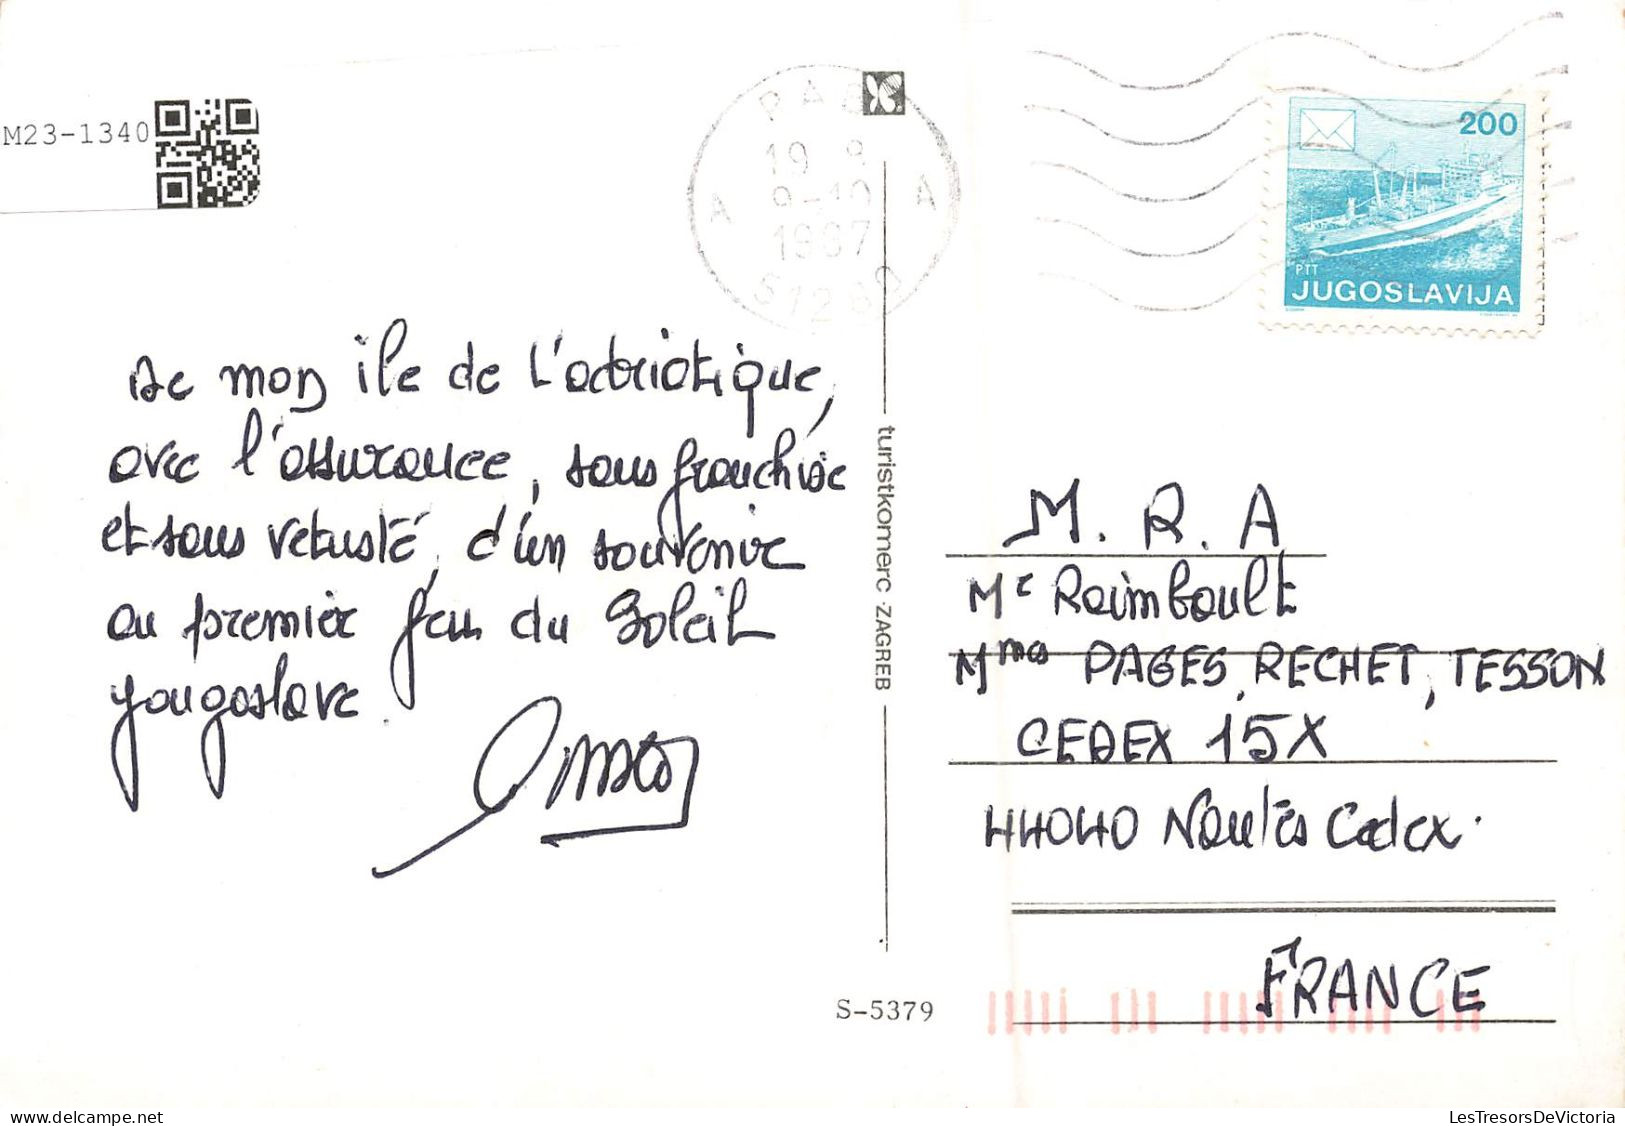 M23-1340
A A
19 8
9-10
1987
51280
200
PTT
JUGOSLAVIJA
De mon ile de l'adriatique,
avec l'assurance, sans franchise
et sans vetusté, d'un souvenir
au premier feu du Soleil
yougoslave.
turistkomerc ZAGREB
M. R. A
Mr Raimbault
Mmes PAGES, RECHET, TESSON
CEDEX 15X
44040 Nantes Cedex.
FRANCE
S-5379
LesTresorsDeVictoria